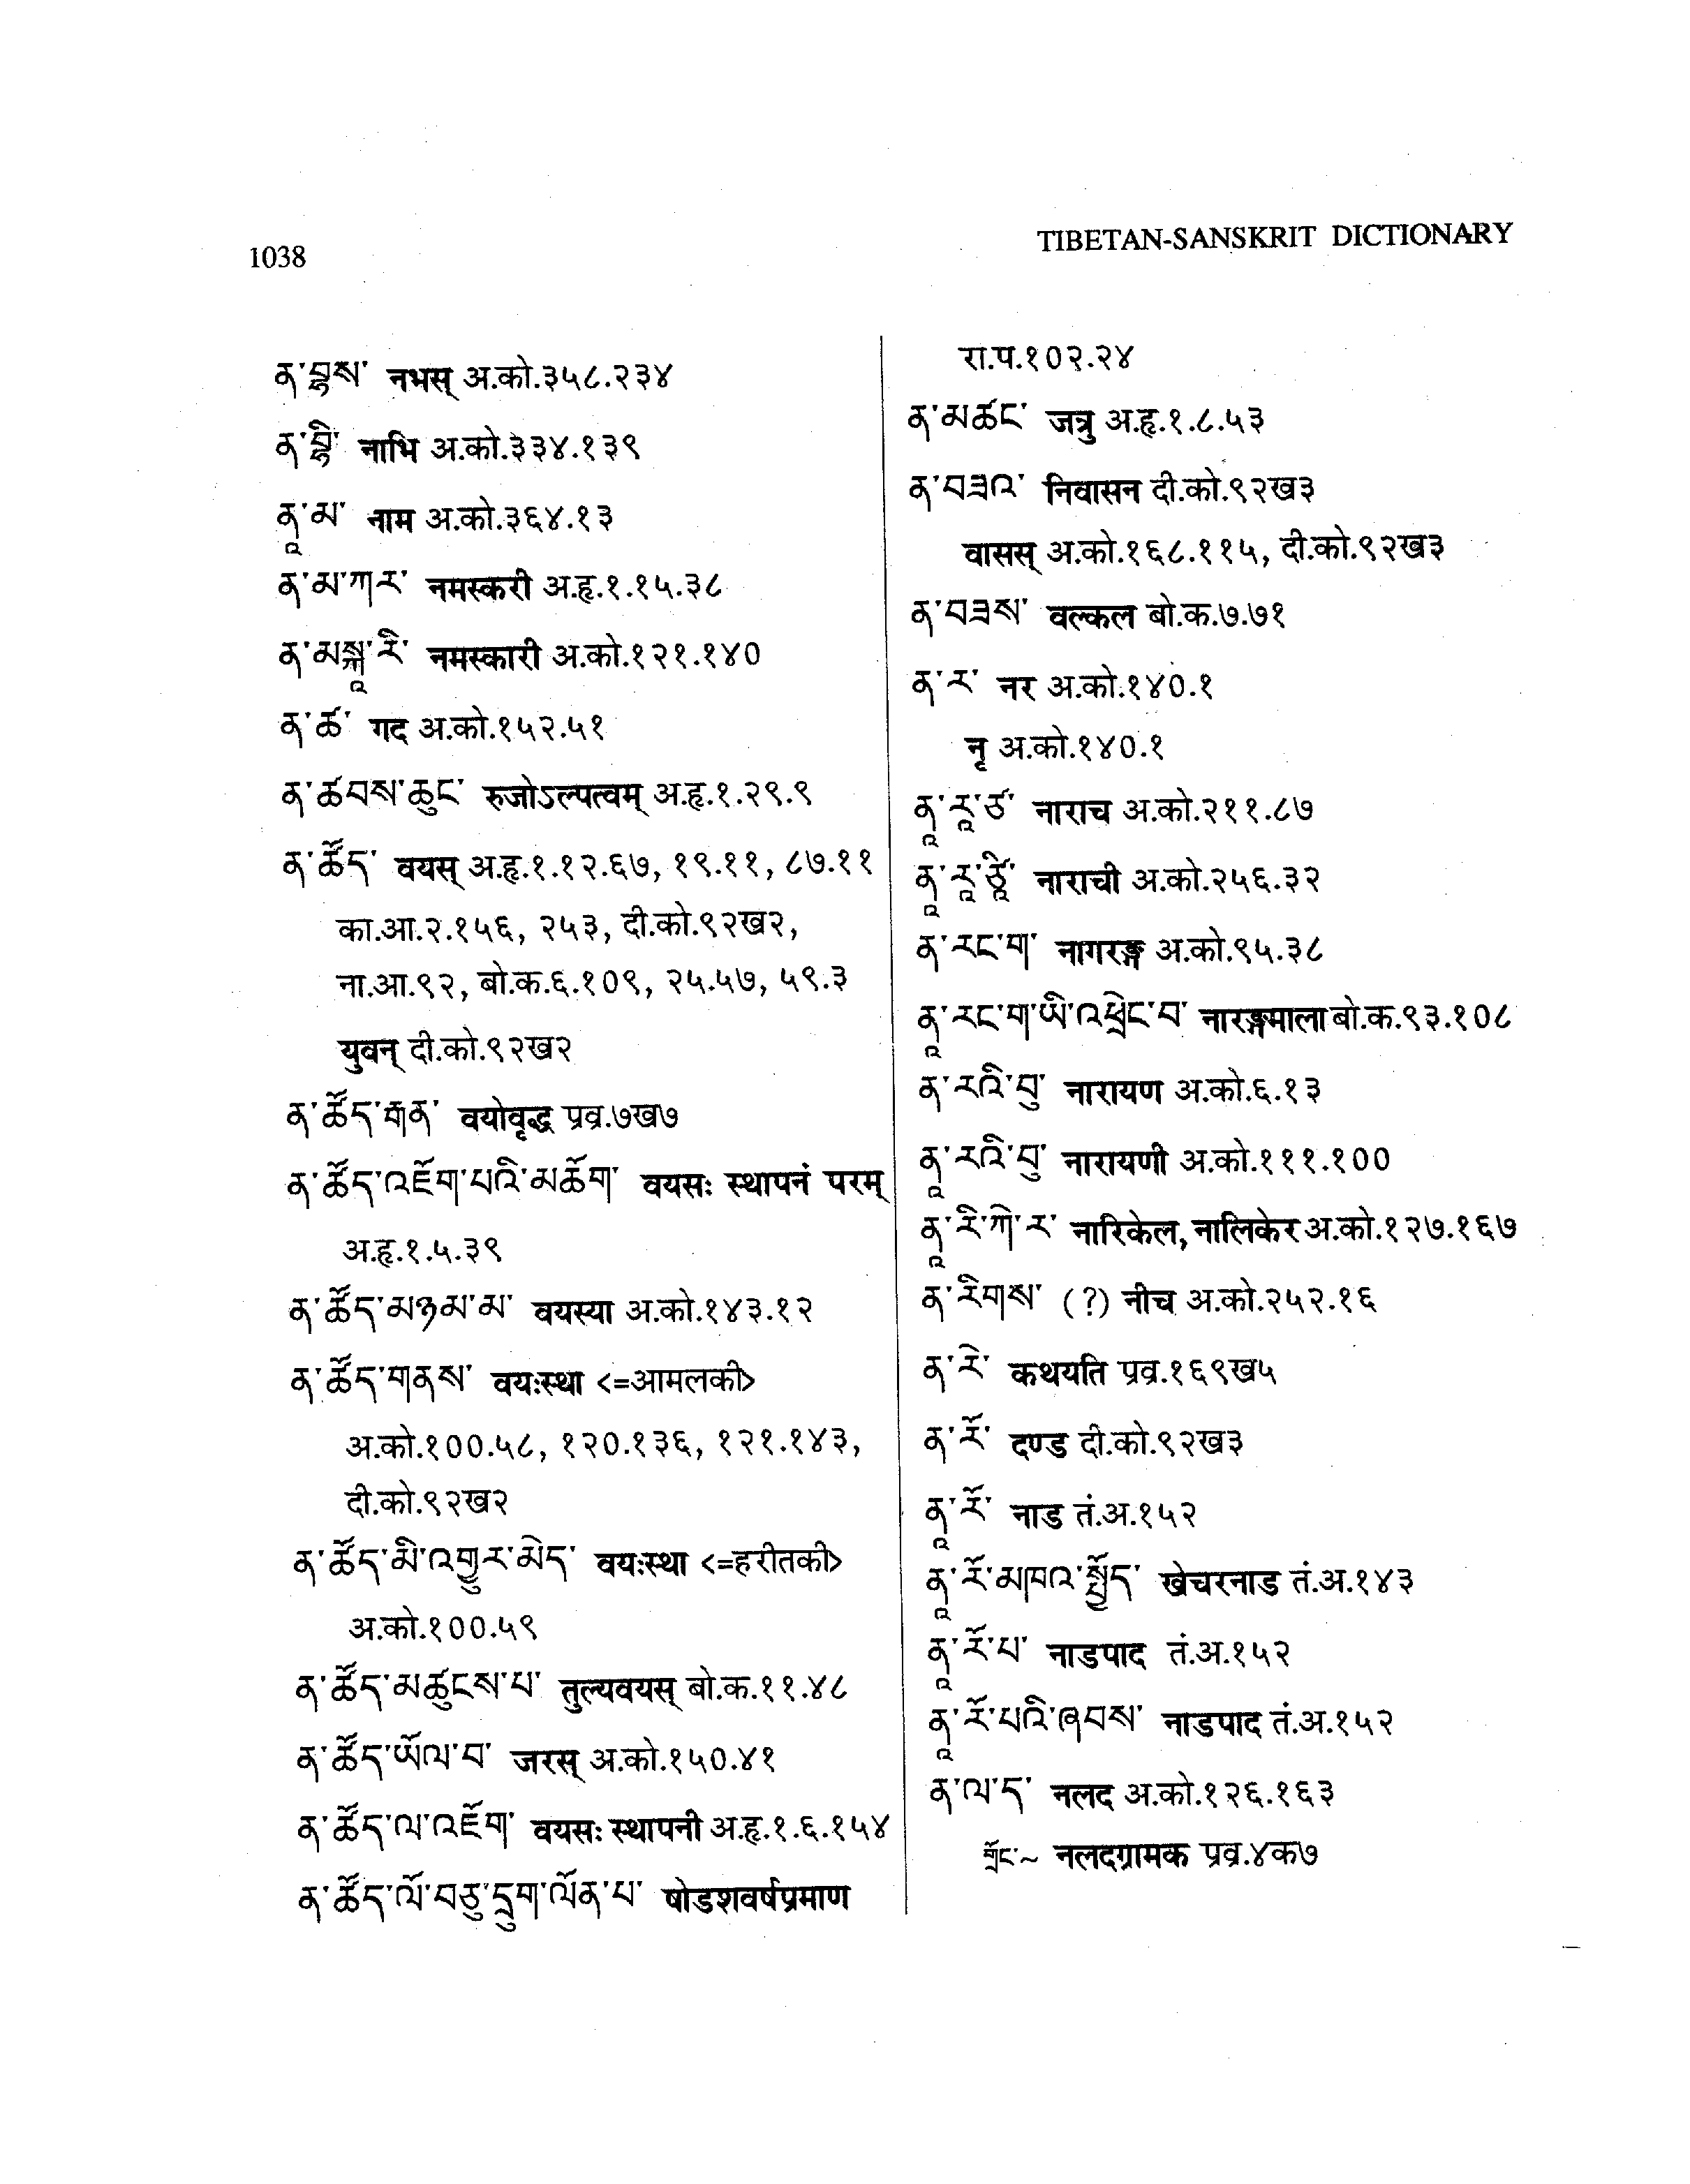 1038
TIBETAN-SANSKRIT DICTIONARY
ན་བྷས་ नभस् अ.को.३५८.२३४
ན་བྷི་ नाभि अ.को.३३४.१३९
ནཱ་མ་ नाम अ.को.३६४.१३
ན་མ་ཀར་ नमस्करी अ.हृ.१.१५.३८
ན་མསྐཱ་རི་ नमस्कारी अ.को.१२१.१४०
ན་ཚ་ गद अ.को.१५२.५१
ན་ཚབས་ཆུང་ रुजोऽल्पत्वम् अ.हृ.१.२९.९
ན་ཚོད་ वयस् अ.हृ.१.१२.६७, १९.११, ८७.११
का.आ.२.१५६, २५३, दी.को.९२ख२,
ना.आ.९२, बो.क.६.१०९, २५.५७, ५९.३
युवन् दी.को.९२ख२
ན་ཚོད་རྒན་ वयोवृद्ध प्रव्र.७ख७
ན་ཚོད་འཇོག་པའི་མཆོག་ वयसः स्थापनं परम्
अ.हृ.१.५.३९
ན་ཚོད་མཉམ་མ་ वयस्या अ.को.१४३.१२
ན་ཚོད་གནས་ वयःस्था <=आमलकी>
अ.को.१००.५८, १२०.१३६, १२१.१४३,
दी.को.९२ख२
ན་ཚོད་མི་འགྱུར་མེད་ वयःस्था <=हरीतकी>
अ.को.१००.५९
ན་ཚོད་མཚུངས་པ་ तुल्यवयस् बो.क.११.४८
ན་ཚོད་ཡོལ་བ་ जरस् अ.को.१५०.४१
ན་ཚོད་ལ་འཇོག་ वयसः स्थापनी अ.हृ.१.६.१५४
ན་ཚོད་ལོ་བཅུ་དྲུག་ལོན་པ་ षोडशवर्षप्रमाण
रा.प.१०२.२४
ན་མཚང་ जत्रु अ.हृ.१.८.५३
ན་བཟའ་ निवासन दी.को.९२ख३
वासस् अ.को.१६८.११५, दी.को.९२ख३
ན་བཟས་ वल्कल बो.क.७.७१
ན་ར་ नर अ.को.१४०.१
नृ अ.को.१४०.१
ནཱ་རཱ་ཙ་ नाराच अ.को.२११.८७
ནཱ་རཱ་ཙཱི་ नाराची अ.को.२५६.३२
ན་རང་ག་ नागरङ्ग अ.को.९५.३८
ནཱ་རང་ག་ཡི་འཕྲེང་བ་ नारङ्गमाला बो.क.९३.१०८
ན་རའི་བུ་ नारायण अ.को.६.१३
ནཱ་རའི་བུ་ नारायणी अ.को.१११.१००
ནཱ་རི་ཀེ་ར་ नारिकेल, नालिकेर अ.को.१२७.१६७
ན་རིགས་ (?) नीच अ.को.२५२.१६
ན་རེ་ कथयति प्रव्र.१६९ख५
ན་རོ་ दण्ड दी.को.९२ख३
ནཱ་རོ་ नाड तं.अ.१५२
ནཱ་རོ་མཁའ་སྤྱོད་ खेचरनाड तं.अ.१४३
ནཱ་རོ་པ་ नाडपाद तं.अ.१५२
ནཱ་རོ་པའི་ཞབས་ नाडपाद तं.अ.१५२
ན་ལ་ད་ नलद अ.को.१२६.१६३
གྲོང་~ नलदग्रामक प्रव्र.४क७